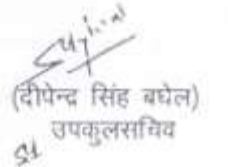 (दीपेन्द्र सिंह बघेल)
उपकुलसचिव